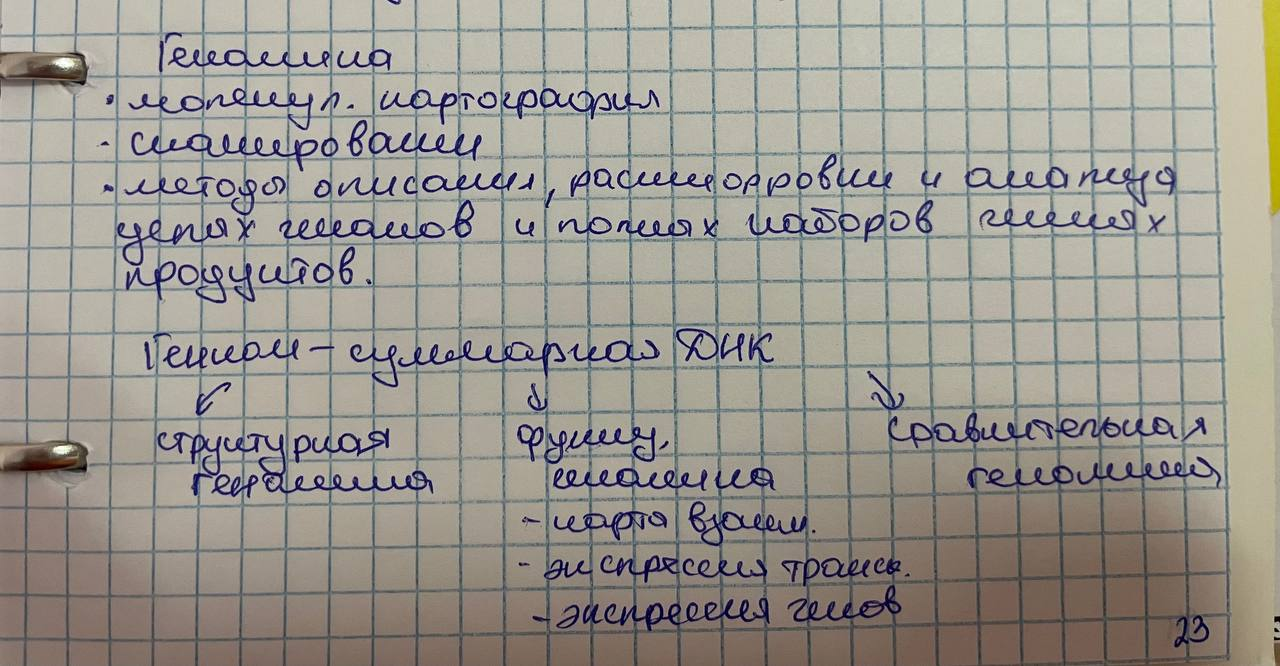 Геномика
· молекул. картография
- сканирование
· методы описания, расшифровки и анализа
целых геномов и полных наборов генных
продуктов.
Геном – суммарная ДНК
↙ ↓ ↘
структурная функц. сравнительная
геномика геномика геномика
- карта взаим.
- экспрессия транск.
- экспрессия генов
23